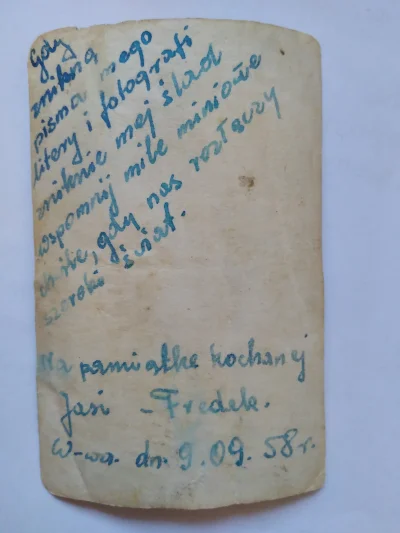 Gdy
znikną
pisma mego
litery i fotografi
zniknie mej ślad
wspomnij miłe miniowe
chwile, gdy nas rozłączy
szeroki świat.
Na pamiątke kochanej
Jasi - Fredek.
W-wa. dn. 9.09.58r.